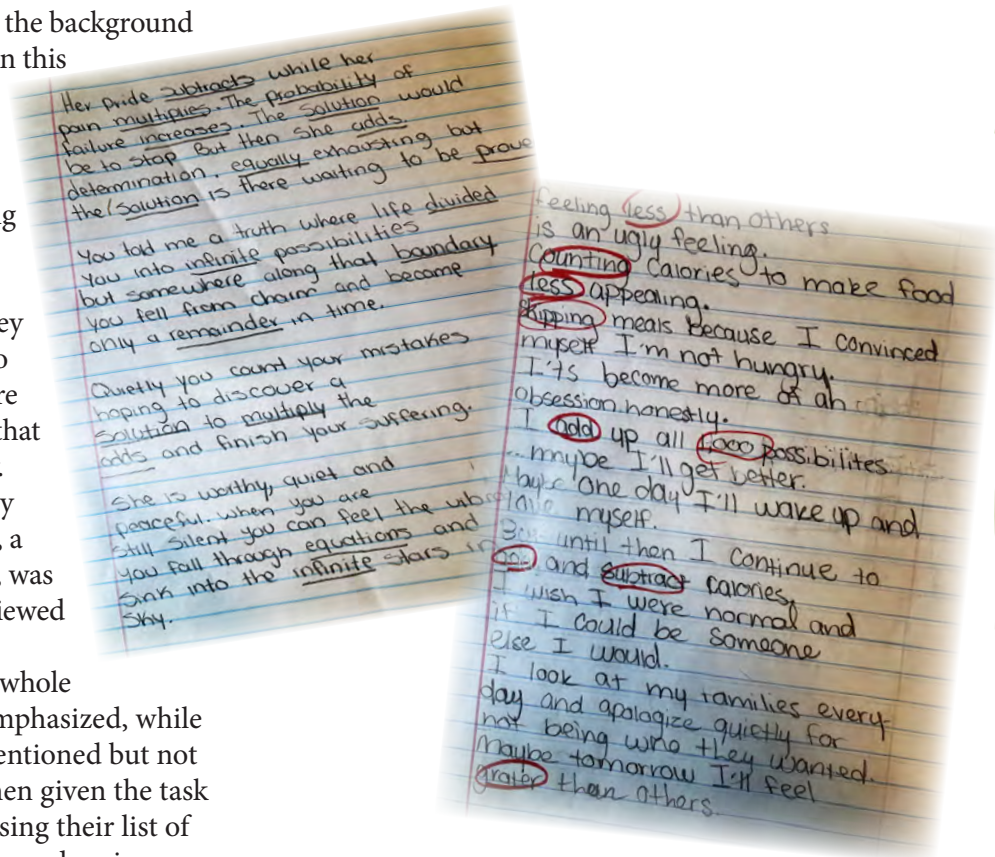 the background
n this
ng
ey
o
re
that
y
, a
, was
iewed
whole
mphasized, while
entioned but not
hen given the task
sing their list of
Her Pride subtracts while her
pain multiplies. The probability of
failure increases. The solution would
be to stop But then she adds.
determination, equally exhausting but
the solution is there waiting to be prove
You told me a truth where life divided
you into infinite possibilities
but somewhere along that boundary
you fell from charm and become
only a remainder in time.
Quietly you count your mistakes
hoping to discover a
solution to multiply the
odds and finish your suffering.
She is worthy, quiet and
peaceful. When you are
still silent you can feel the
you fall through equations and
sink into the infinite stars in
sky.
feeling less than others
is an ugly feeling.
Counting calories to make food
less appealing.
skipping meals because I convinced
myself I'm not hungry.
I'ts become more of an
obsession honestly.
I add up all 1,000 possibilites
...maybe I'll get better.
one day I'll wake up and
myself.
until then I continue to
and subtract calories.
I wish I were normal and
if I could be someone
else I would.
I look at my families every-
day and apologize quietly for
not being who they wanted.
Maybe tomorrow I'll feel
grater than others.